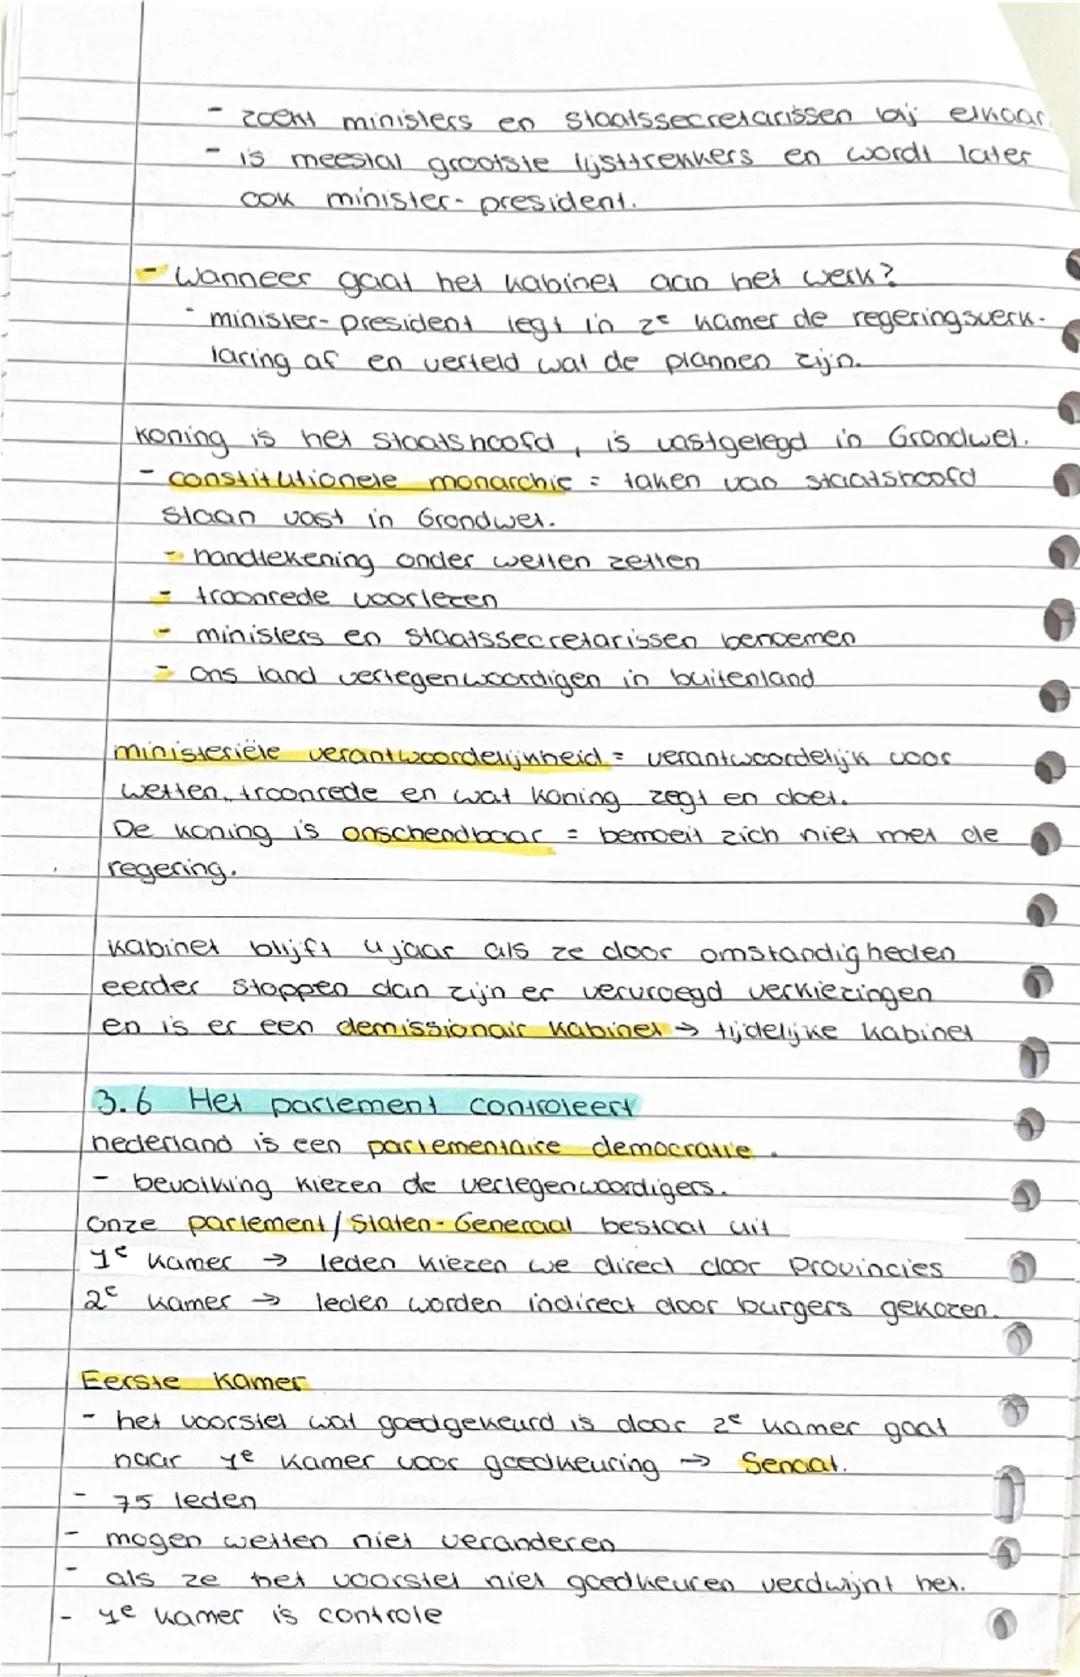 - zoekt ministers en staatssecretarissen bij elkaar.
- is meestal grootste lijsttrekkers en wordt later
ook minister-president.
- Wanneer gaat het kabinet aan het werk?
- minister-president legt in 2e kamer de regeringsverk-
laring af en verteld wat de plannen zijn.
Koning is het staatshoofd, is vastgelegd in Grondwet.
- constitutionele monarchie = taken van staatshoofd
staan vast in Grondwet.
- handtekening onder wetten zetten
- troonrede voorlezen
- ministers en staatssecretarissen benoemen
- ons land vertegenwoordigen in buitenland
ministeriële verantwoordelijkheid = verantwoordelijk voor
wetten, troonrede en wat koning zegt en doet.
De koning is onschendbaar = bemoeit zich niet met de
regering.
Kabinet blijft 4 jaar als ze door omstandigheden
eerder stoppen dan zijn er vervroegd verkiezingen
en is er een demissionair kabinet → tijdelijke kabinet
3.6 Het parlement controleert
nederland is een parlementaire democratie.
- bevolking kiezen de vertegenwoordigers.
Onze parlement/Staten-Generaal bestaat uit
1e kamer → leden kiezen we direct door Provincies
2e kamer → leden worden indirect door burgers gekozen.
Eerste Kamer
- het voorstel wat goedgekeurd is door 2e kamer gaat
naar 1e kamer voor goedkeuring → Senaat.
- 75 leden
- mogen wetten niet veranderen
- als ze het voorstel niet goedkeuren verdwijnt het.
- 1e kamer is controle